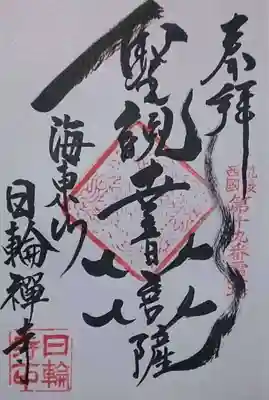 奉拝
西國第十九番霊場
聖観世音菩薩
海東山
日輪禪寺
日輪寺印